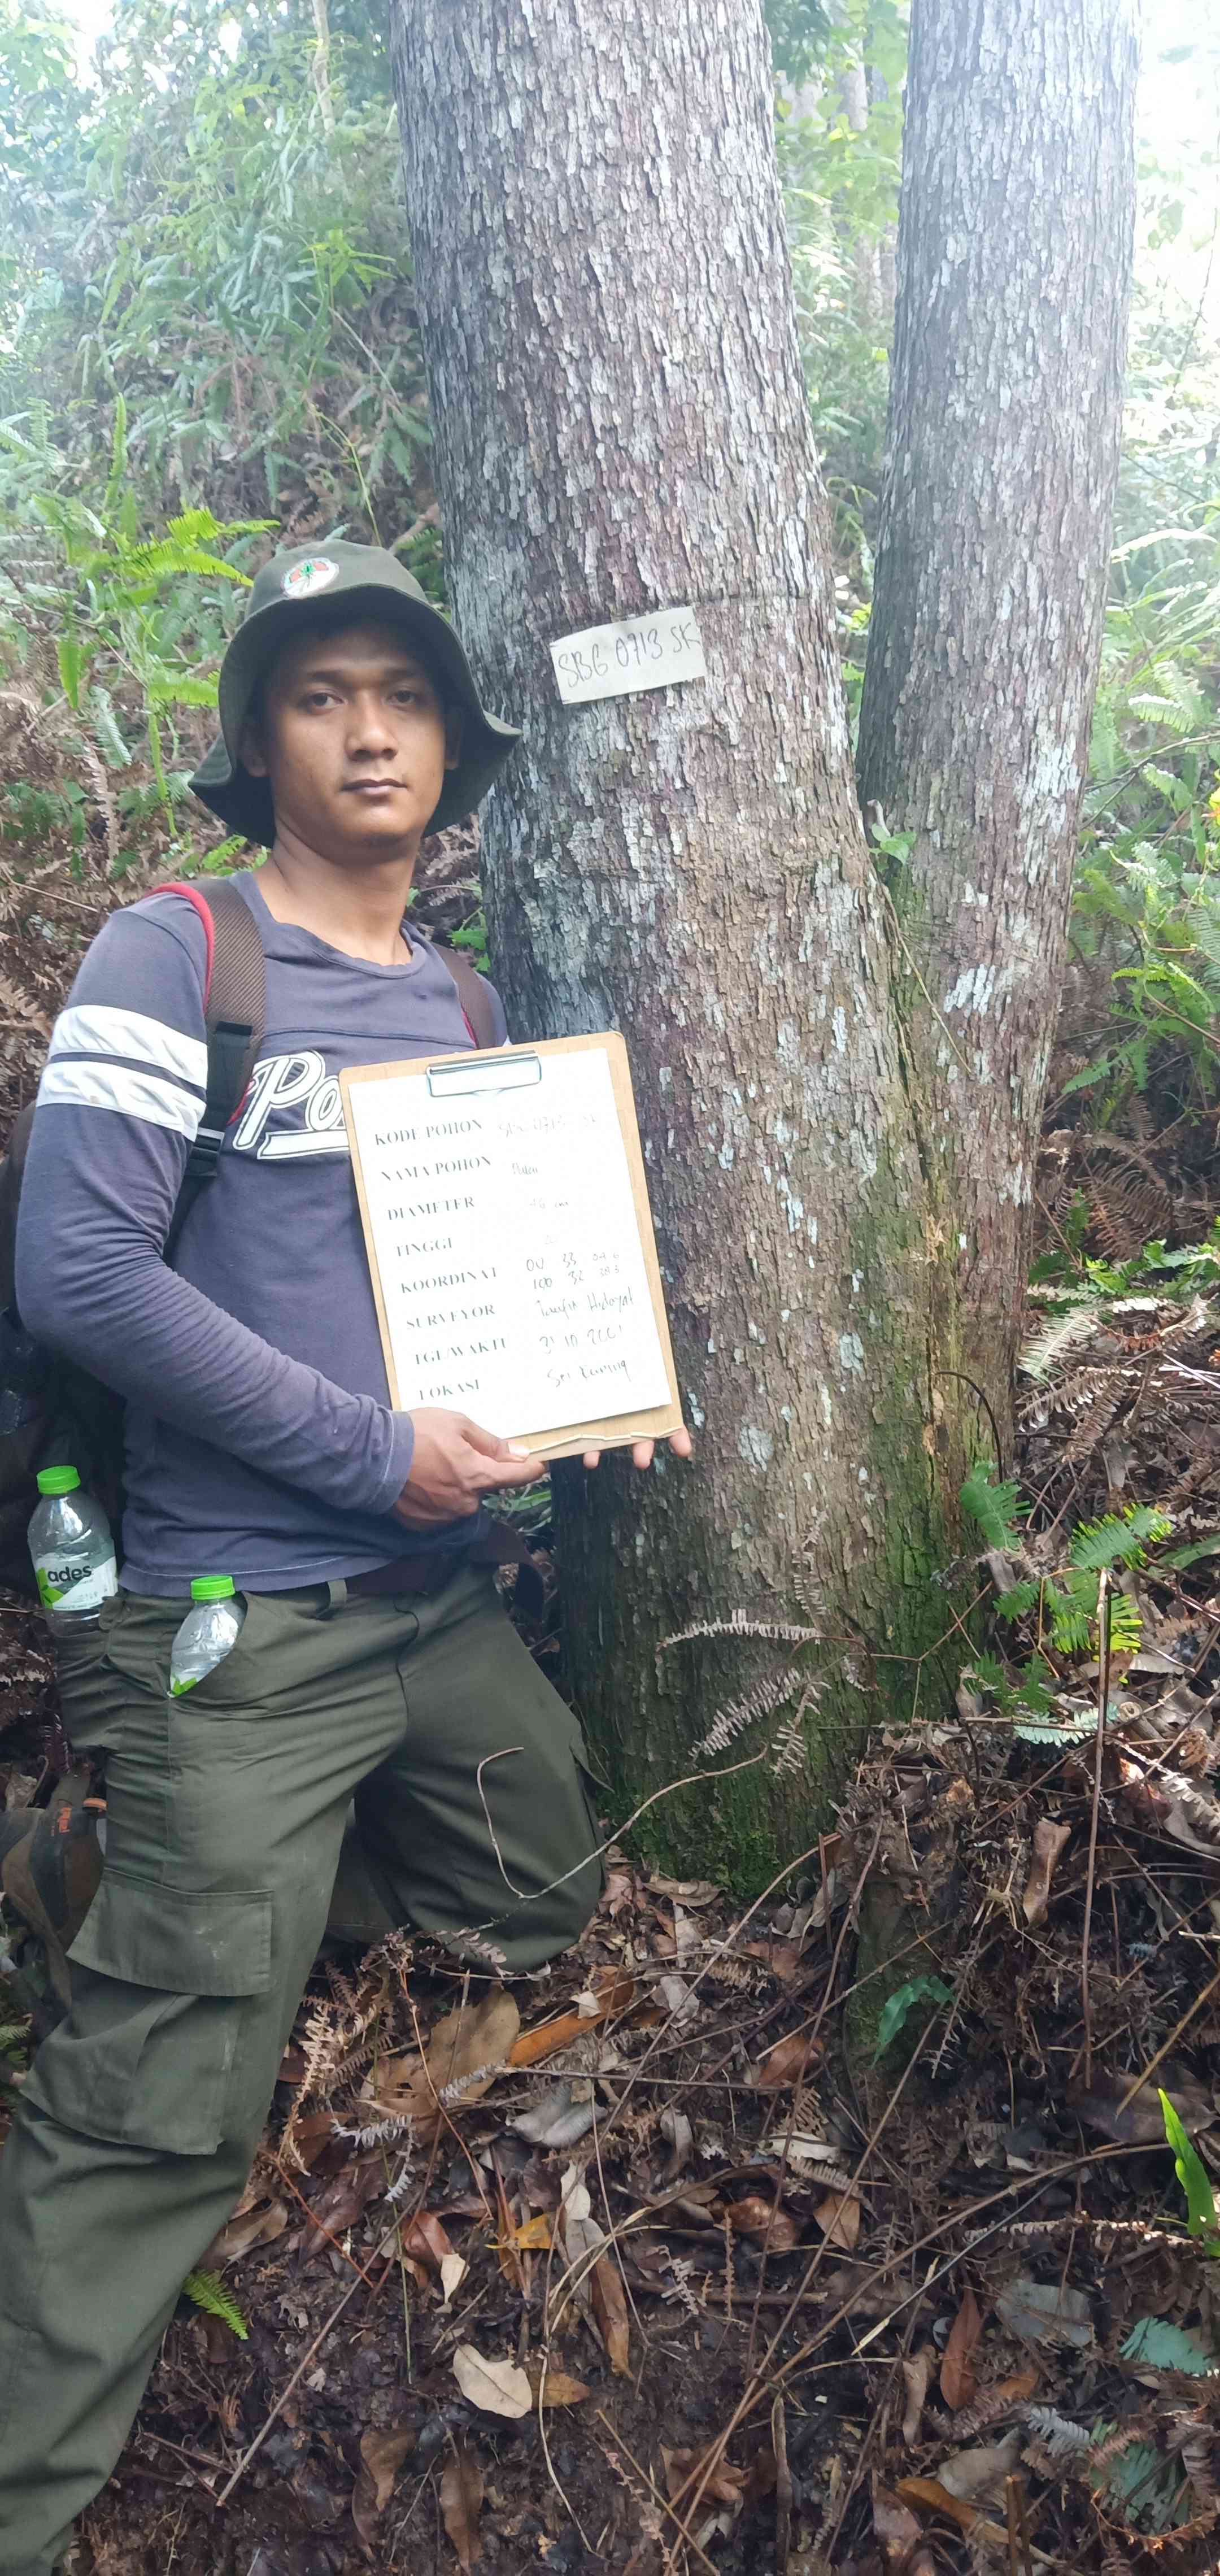 SBG 0713 SK
Po
KODE POHON SBG 0713 SK
NAMA POHON
DIAMETER cm
TINGGI
KOORDINAT 00 33
100 32
SURVEYOR Taufik Hidayat
TGL/WAKTU 21 10 2021
LOKASI Sei
ades